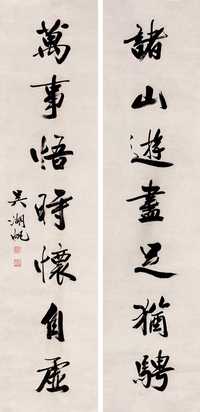 諸山遊盡足猶騁
萬事悟時懷自虛
吳湖帆